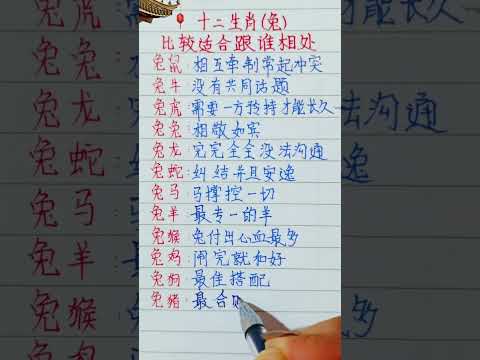 十二生肖(兔)
比较适合跟谁相处
兔鼠:相互牵制常起冲突
兔牛:没有共同话题
兔虎:需要一方扶持才能长久
兔兔:相敬如宾
兔龙:完完全全没法沟通
兔蛇:纠结并且安逸
兔马:马撑控一切
兔羊:最专一的羊
兔猴:兔付出心血最多
兔鸡:闹完就和好
兔狗:最佳搭配
兔猪:最合